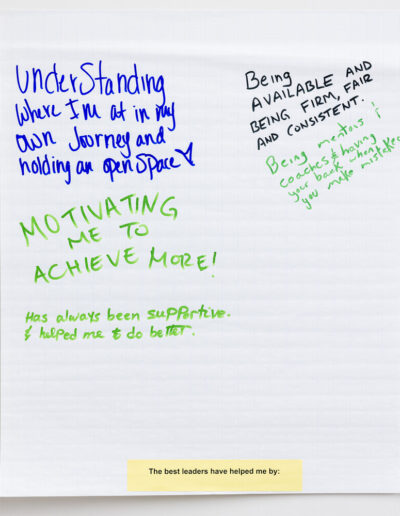 UnderStanding
where I'm at in my
own Journey and
holding an open Space
Being
AVAILABLE AND
BEING FIRM, FAIR
AND CONSISTENT.
Being mentors &
coaches & having
your back when
you make mistakes
MOTIVATING
ME TO
ACHIEVE MORE!
Has always been supportive.
& helped me to do better.
The best leaders have helped me by: